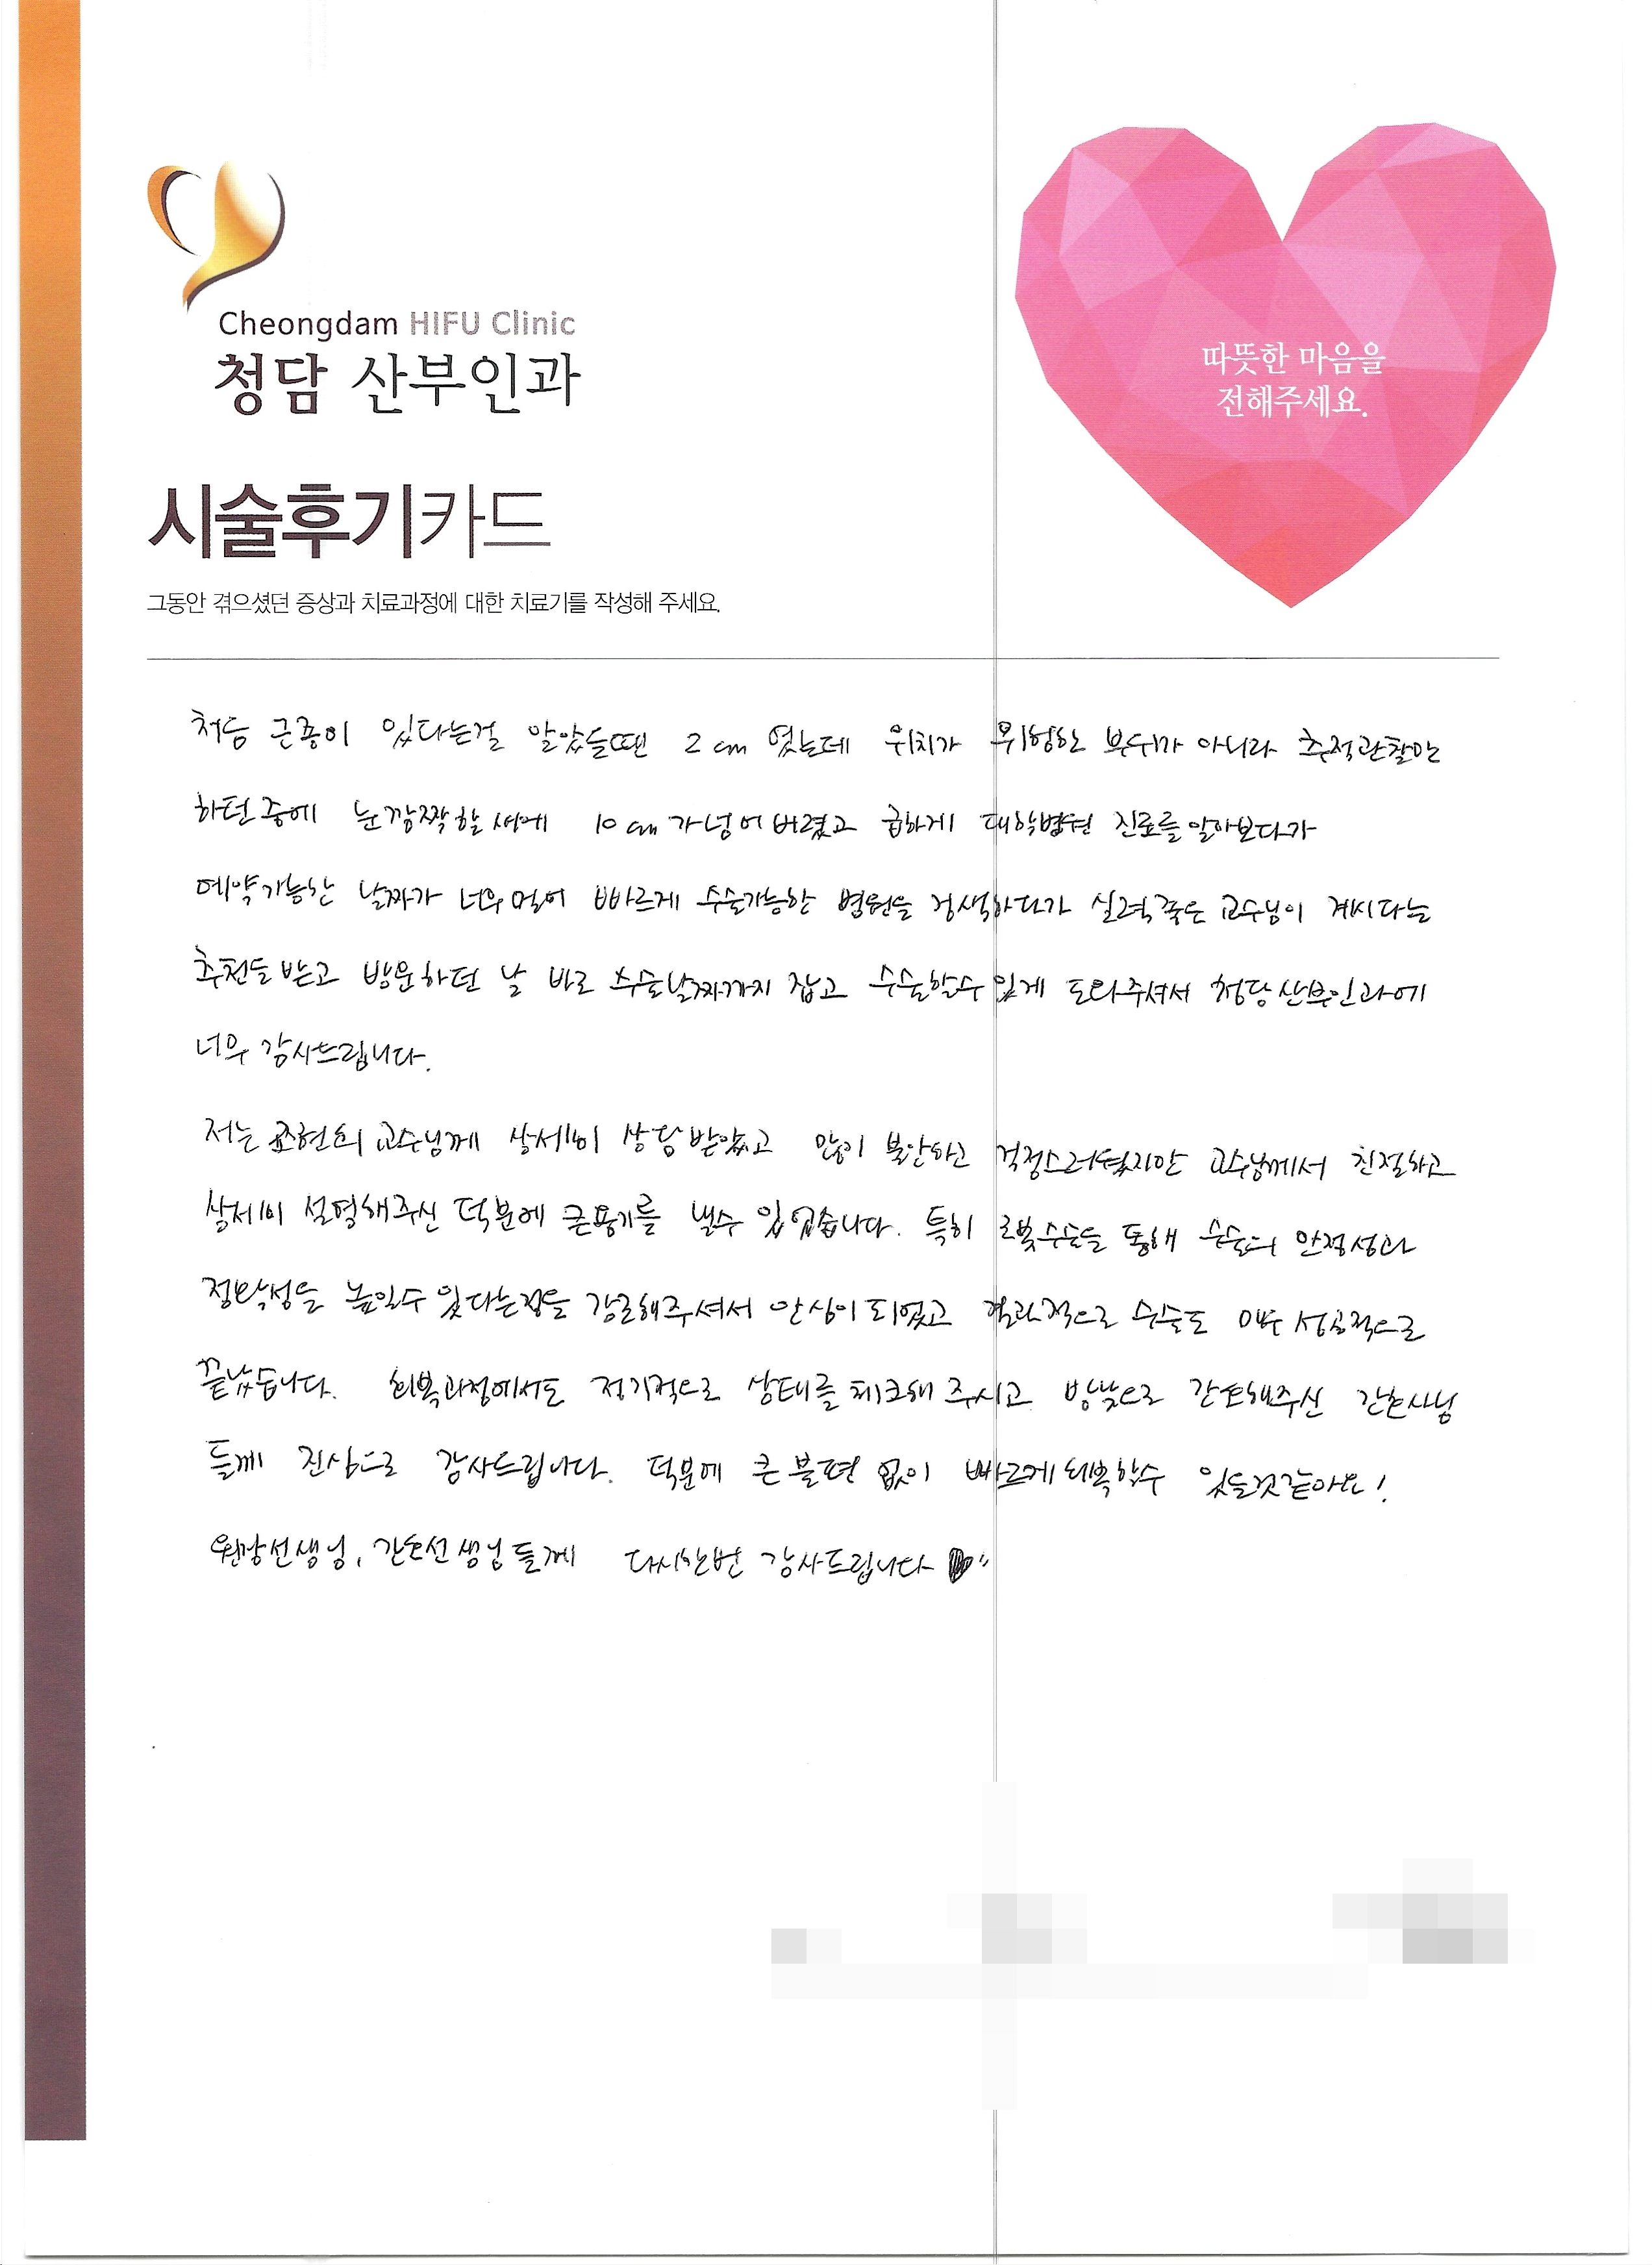 Cheongdam HIFU Clinic
청담 산부인과
따뜻한 마음을
전해주세요.
시술후기카드
그동안 겪으셨던 증상과 치료과정에 대한 치료기를 작성해 주세요.
처음 근종이 있다는걸 알았을땐 2cm 였는데 위치가 위험한 부위가 아니라 추적관찰만
하던중에 눈깜짝할새에 10cm가 넘어버렸고 급하게 대학병원 진료를 알아보다가
예약가능한 날짜가 너무 멀어 빠르게 수술가능한 병원을 검색하다가 실력좋은 교수님이 계시다는
추천을 받고 방문하던 날 바로 수술날짜까지 잡고 수술할수 있게 도와주셔서 청담산부인과에
너무 감사드립니다.
저는 조현희 교수님께 상세히 상담받았고 많이 불안하고 걱정스러웠지만 교수님께서 친절하고
상세히 설명해주신 덕분에 큰용기를 낼수 있었습니다. 특히 로봇수술을 통해 수술의 안정성과
정확성을 높일수 있다는점을 강조해주셔서 안심이 되었고 결과적으로 수술도 매우 성공적으로
끝났습니다. 회복과정에서도 정기적으로 상태를 체크해 주시고 밤낮으로 간호해주신 간호사님
들께 진심으로 감사드립니다. 덕분에 큰 불편 없이 빠르게 회복할수 있을것같아요!
원장선생님, 간호선생님들께 다시한번 감사드립니다